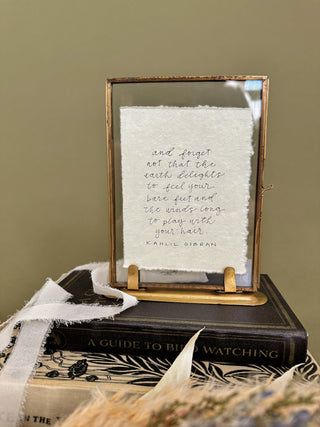 and forget
not that the
earth delights
to feel your
bare feet and
the winds long
to play with
your hair
KAHLIL GIBRAN
A GUIDE TO BIRD WATCHING
IN THE